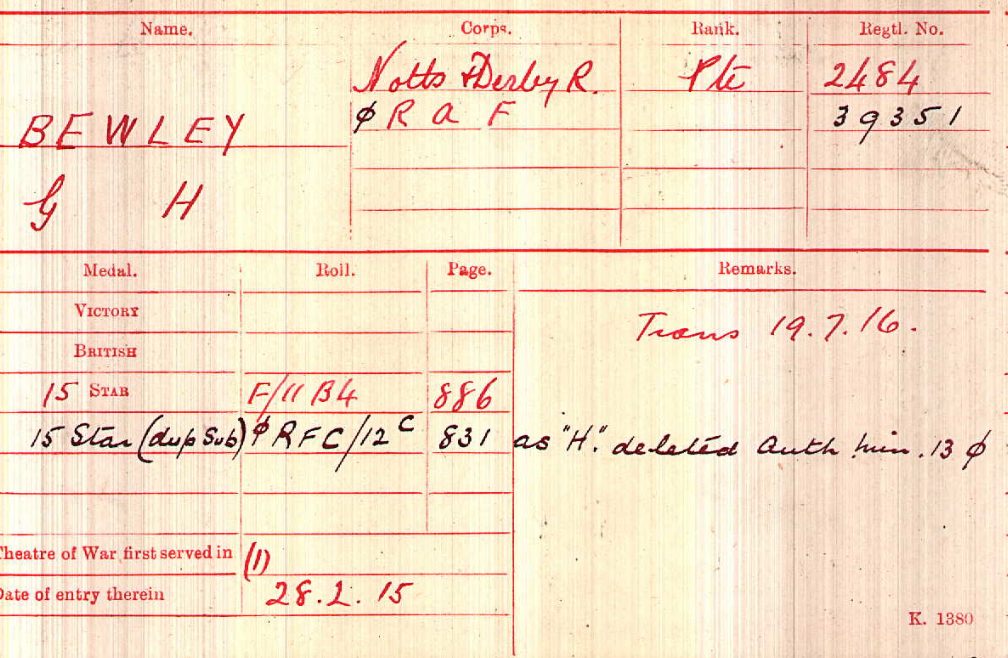 Name. Corps. Rank. Regtl. No.
Notts & Derby R. Pte 2484
BEWLEY φ R A F 39351
G H
Medal. Roll. Page. Remarks.
VICTORY
Trans 19.7.16.
BRITISH
15 STAR F/11 B4 886
15 Star (dup Sub) φ RFC/12 C 831 as "H." deleted Auth min. 13 φ
Theatre of War first served in (1)
Date of entry therein 28.2.15
K. 1380